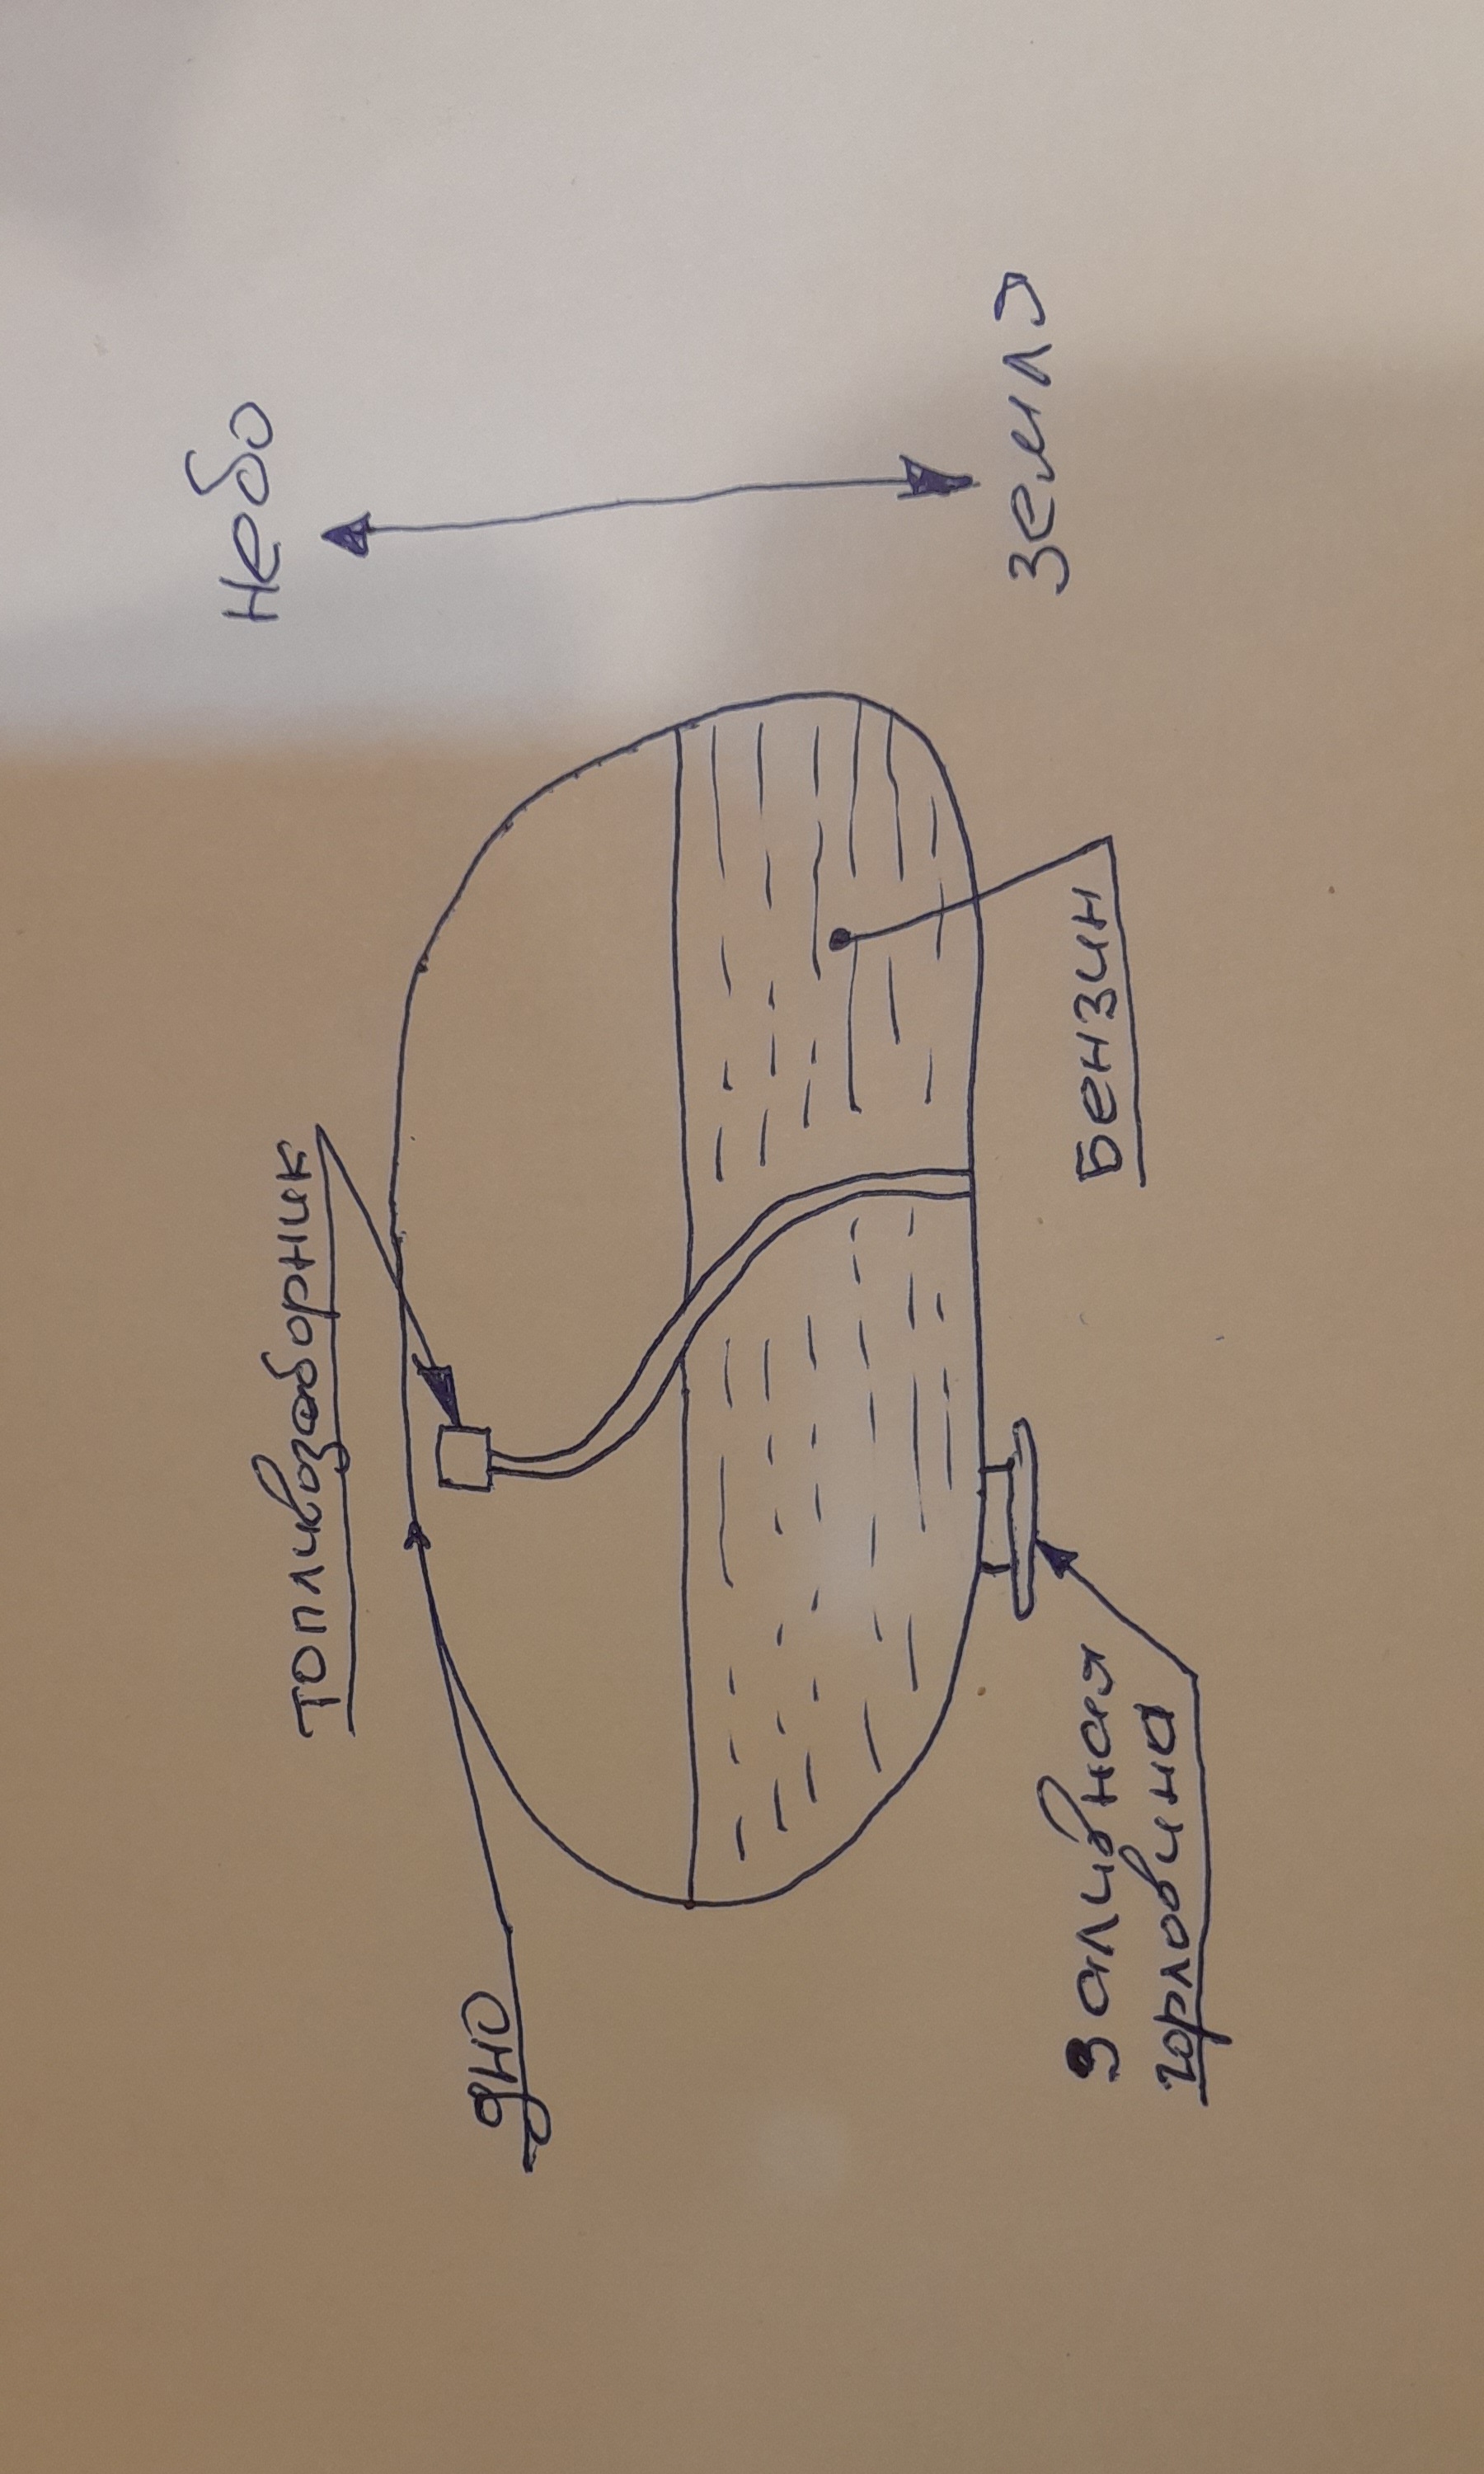 Небо
топливозаборник
дно
земля
Бензин
Заливная
горловина